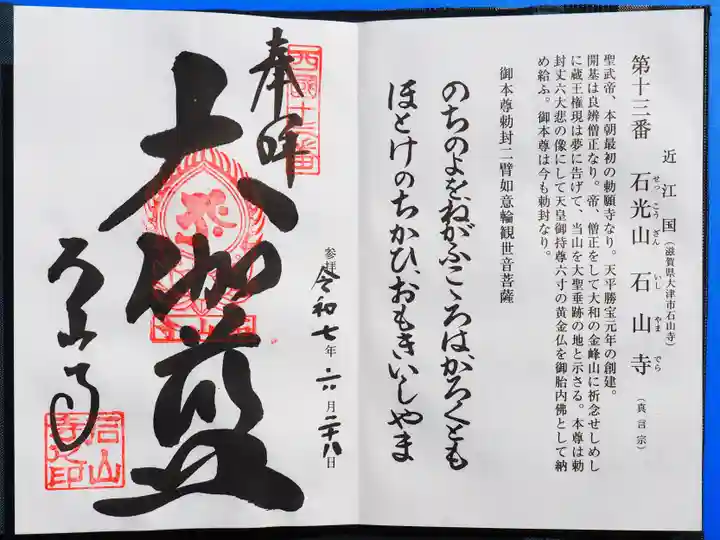 第十三番
近江国(滋賀県大津市石山寺)
石光山 石山寺(真言宗)
せっこうざん いしやまでら
聖武帝、本朝最初の勅願寺なり。天平勝宝元年の創建。
開基は良辨僧正なり。帝、僧正をして大和の金峰山に祈念せしめし
に蔵王権現は夢に告げて、当山を大聖垂跡の地と示さる。本尊は勅
封丈六大悲の像にして天皇御持尊六寸の黄金仏を御胎内佛として納
め給ふ。御本尊は今も勅封なり。
御本尊勅封二臂如意輪観世音菩薩
のちのよをねがふこゝろはかろくとも
ほとけのちかひおもきいしやま
西國十三番
奉拝
大伽藍
石山寺
参拝 令和七年 六月二十八日
石山
寺之印